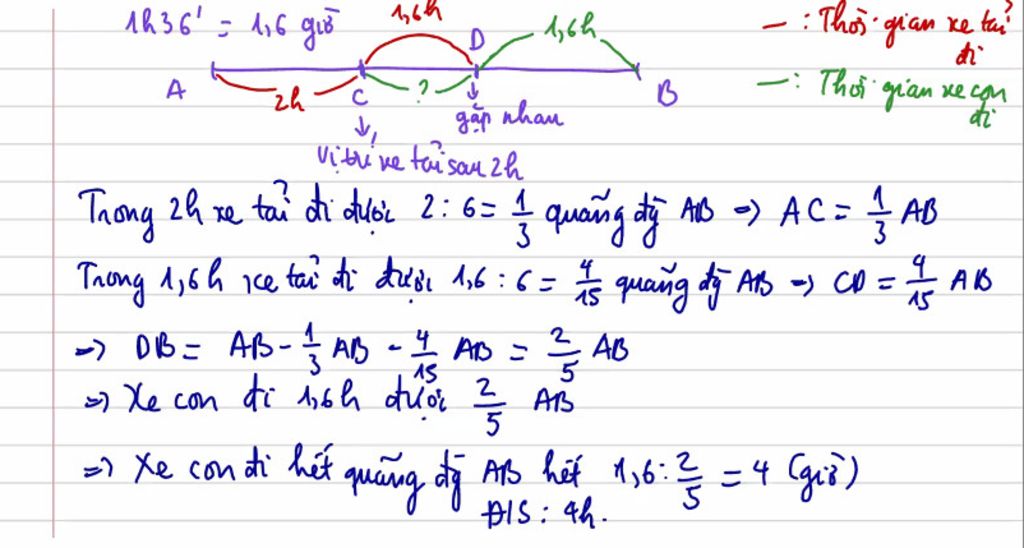 1h36' = 1,6 giờ
1,6h
D
1,6h
— : Thời gian xe tải đi
A
2h
C
?
gặp nhau
B
— : Thời gian xe con đi
Vị trí xe tải sau 2h
Trong 2h xe tải đi được 2 : 6 = 1/3 quãng đg̀ AB => AC = 1/3 AB
Trong 1,6h xe tải đi được 1,6 : 6 = 4/15 quãng đg̀ AB => CD = 4/15 AB
=> DB = AB - 1/3 AB - 4/15 AB = 2/5 AB
=> Xe con đi 1,6h được 2/5 AB
=> Xe con đi hết quãng đg̀ AB hết 1,6 : 2/5 = 4 (giờ)
Đ/S : 4h.